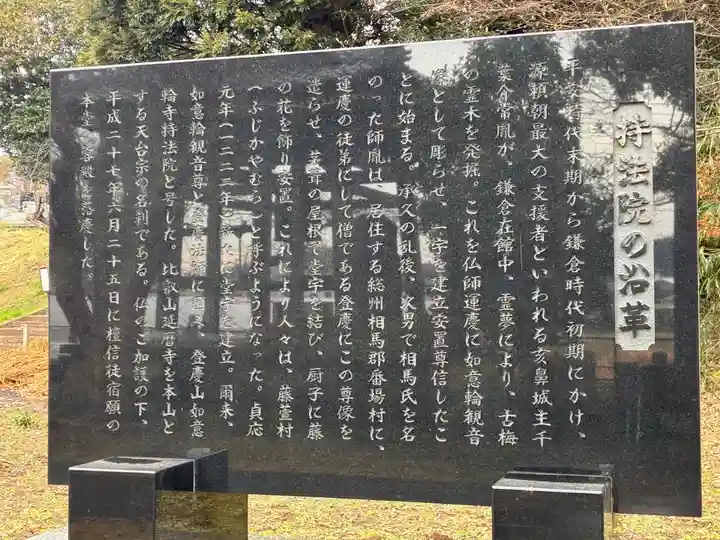 持法院の沿革
平安時代末期から鎌倉時代初期にかけ、
源頼朝最大の支援者といわれる亥鼻城主千
葉介常胤が、鎌倉在館中、霊夢により、古梅
の霊木を発掘。これを仏師運慶に如意輪観音
像として彫らせ、一宇を建立安置尊信したこ
とに始まる。承久の乱後、次男で相馬氏を名
のった師胤は、居住する総州相馬郡番場村に、
運慶の徒弟にして僧である登慶にこの尊像を
造らせ、茅草の屋根で堂宇を結び、厨子に藤
の花を飾り安置。これにより人々は、藤萱村
(ふじかやむら)と呼ぶようになった。貞応
元年(一二二二年)新たに堂宇を建立。爾来、
如意輪観音尊と登慶法師に因み、登慶山如意
輪寺持法院と号した。比叡山延暦寺を本山と
する天台宗の名刹である。仏のご加護の下、
平成二十七年六月二十五日に檀信徒宿願の
本堂・客殿を落慶した。